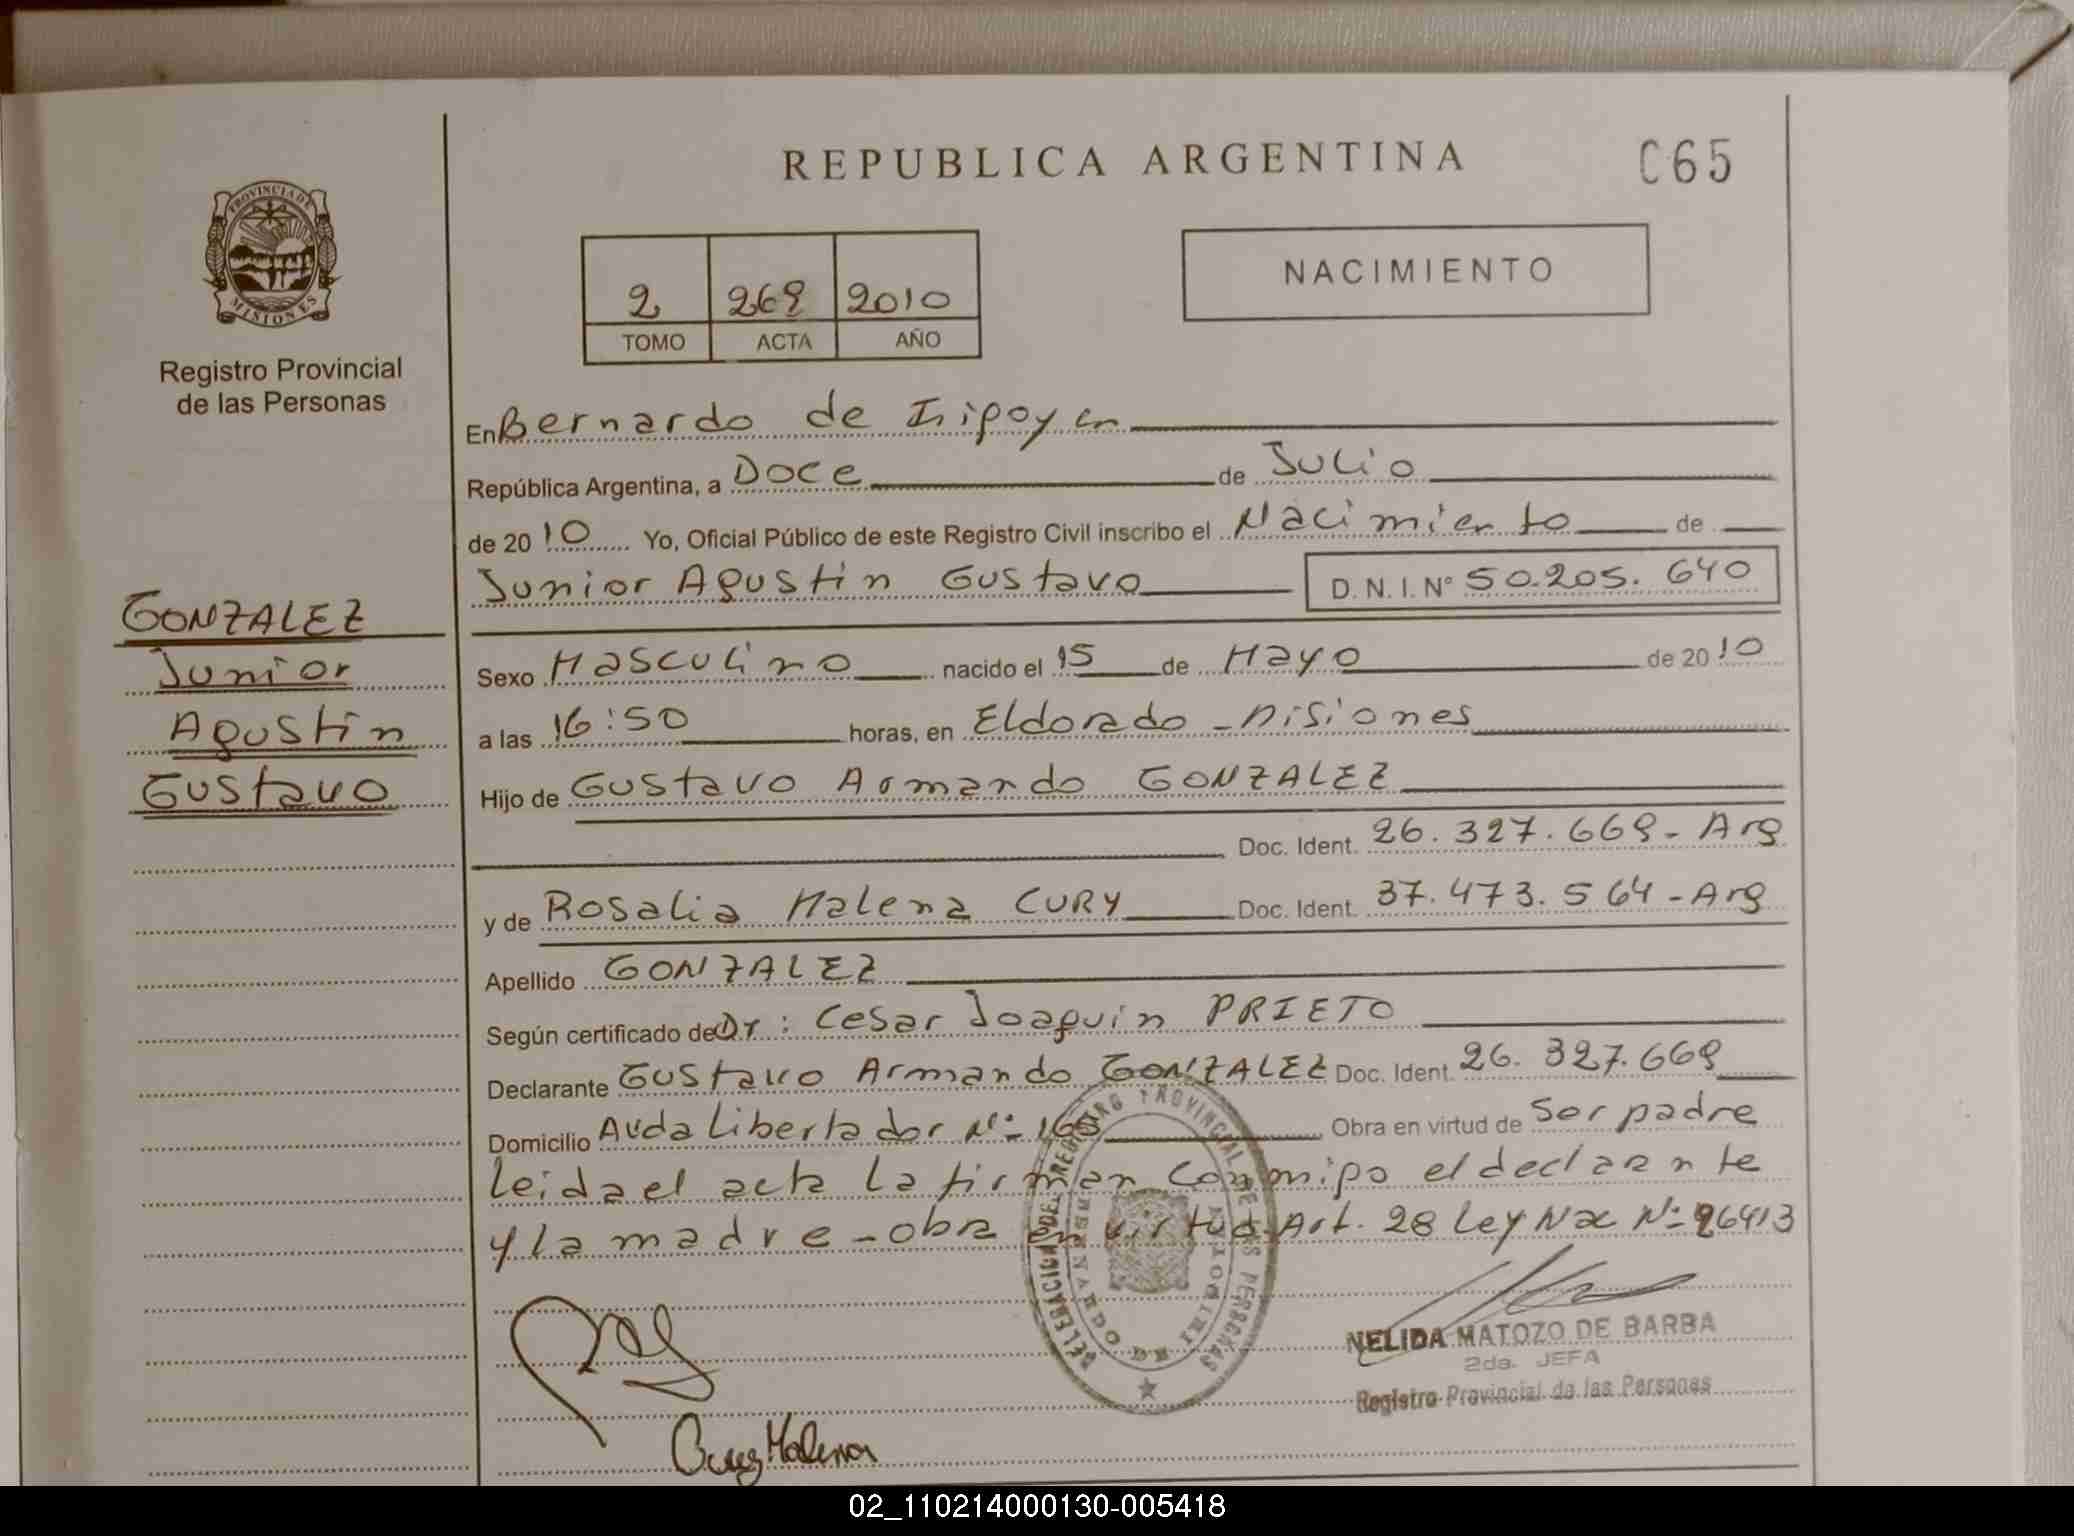 REPUBLICA ARGENTINA
C65
PROVINCIA DE
MISIONES
Registro Provincial
de las Personas
2 269 2010
TOMO ACTA AÑO
NACIMIENTO
En Bernardo de Irigoyen
República Argentina, a Doce de Julio
de 2010 Yo, Oficial Público de este Registro Civil inscribo el Nacimiento de
Junior Agustin Gustavo D.N.I. Nº 50.205.640
GONZALEZ
Junior
Agustin
Gustavo
Sexo Masculino nacido el 15 de Mayo de 2010
a las 16:50 horas, en Eldorado - Misiones
Hijo de Gustavo Armando GONZALEZ
Doc. Ident. 26.327.669 - Arg
y de Rosalia Malena CURY Doc. Ident. 37.473.564 - Arg
Apellido GONZALEZ
Según certificado de Dr: Cesar Joaquin PRIETO
Declarante Gustavo Armando GONZALEZ Doc. Ident. 26.327.669
Domicilio Avda Libertador Nº Obra en virtud de Ser padre
Leida el acta la firman conmigo el declarante
y la madre - obra en virtud Art. 28 Ley Nac Nº 26413
DELEGACION DEL REGISTRO PROVINCIAL DE LAS PERSONAS
BERNARDO DE IRIGOYEN
NELIDA MATOZO DE BARBA
2da. JEFA
Registro Provincial de las Personas
Cury Malena
02_110214000130-005418